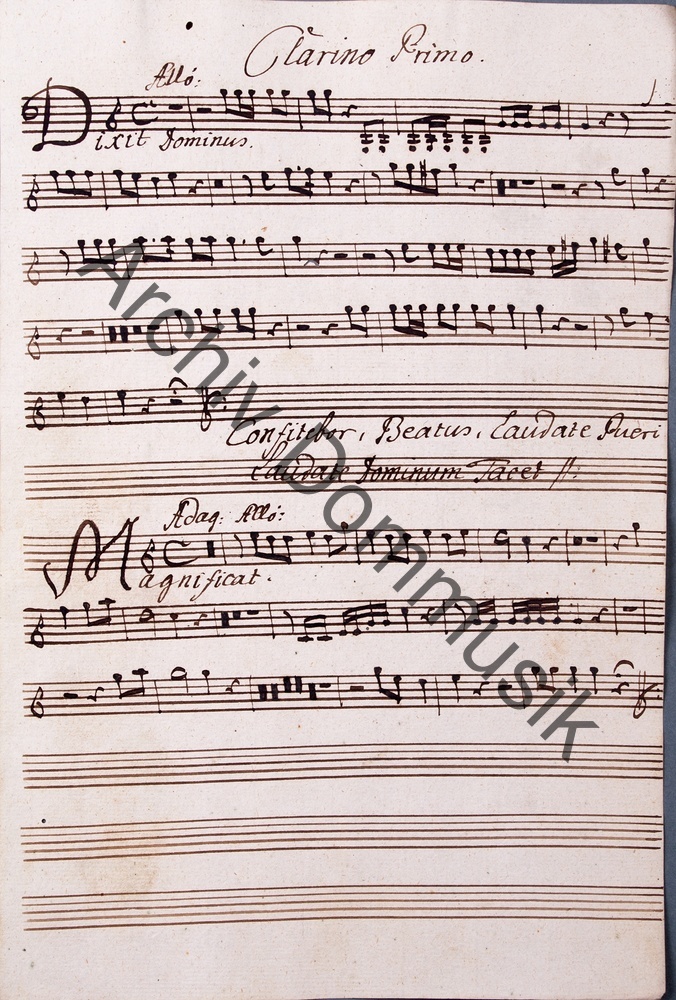 Clarino Primo.
Allo:
Dixit Dominus.
Confitebor, Beatus, Laudate Pueri
Laudate Dominum Tacet //:
Adag: Allo:
Magnificat.
Archiv Dommusik